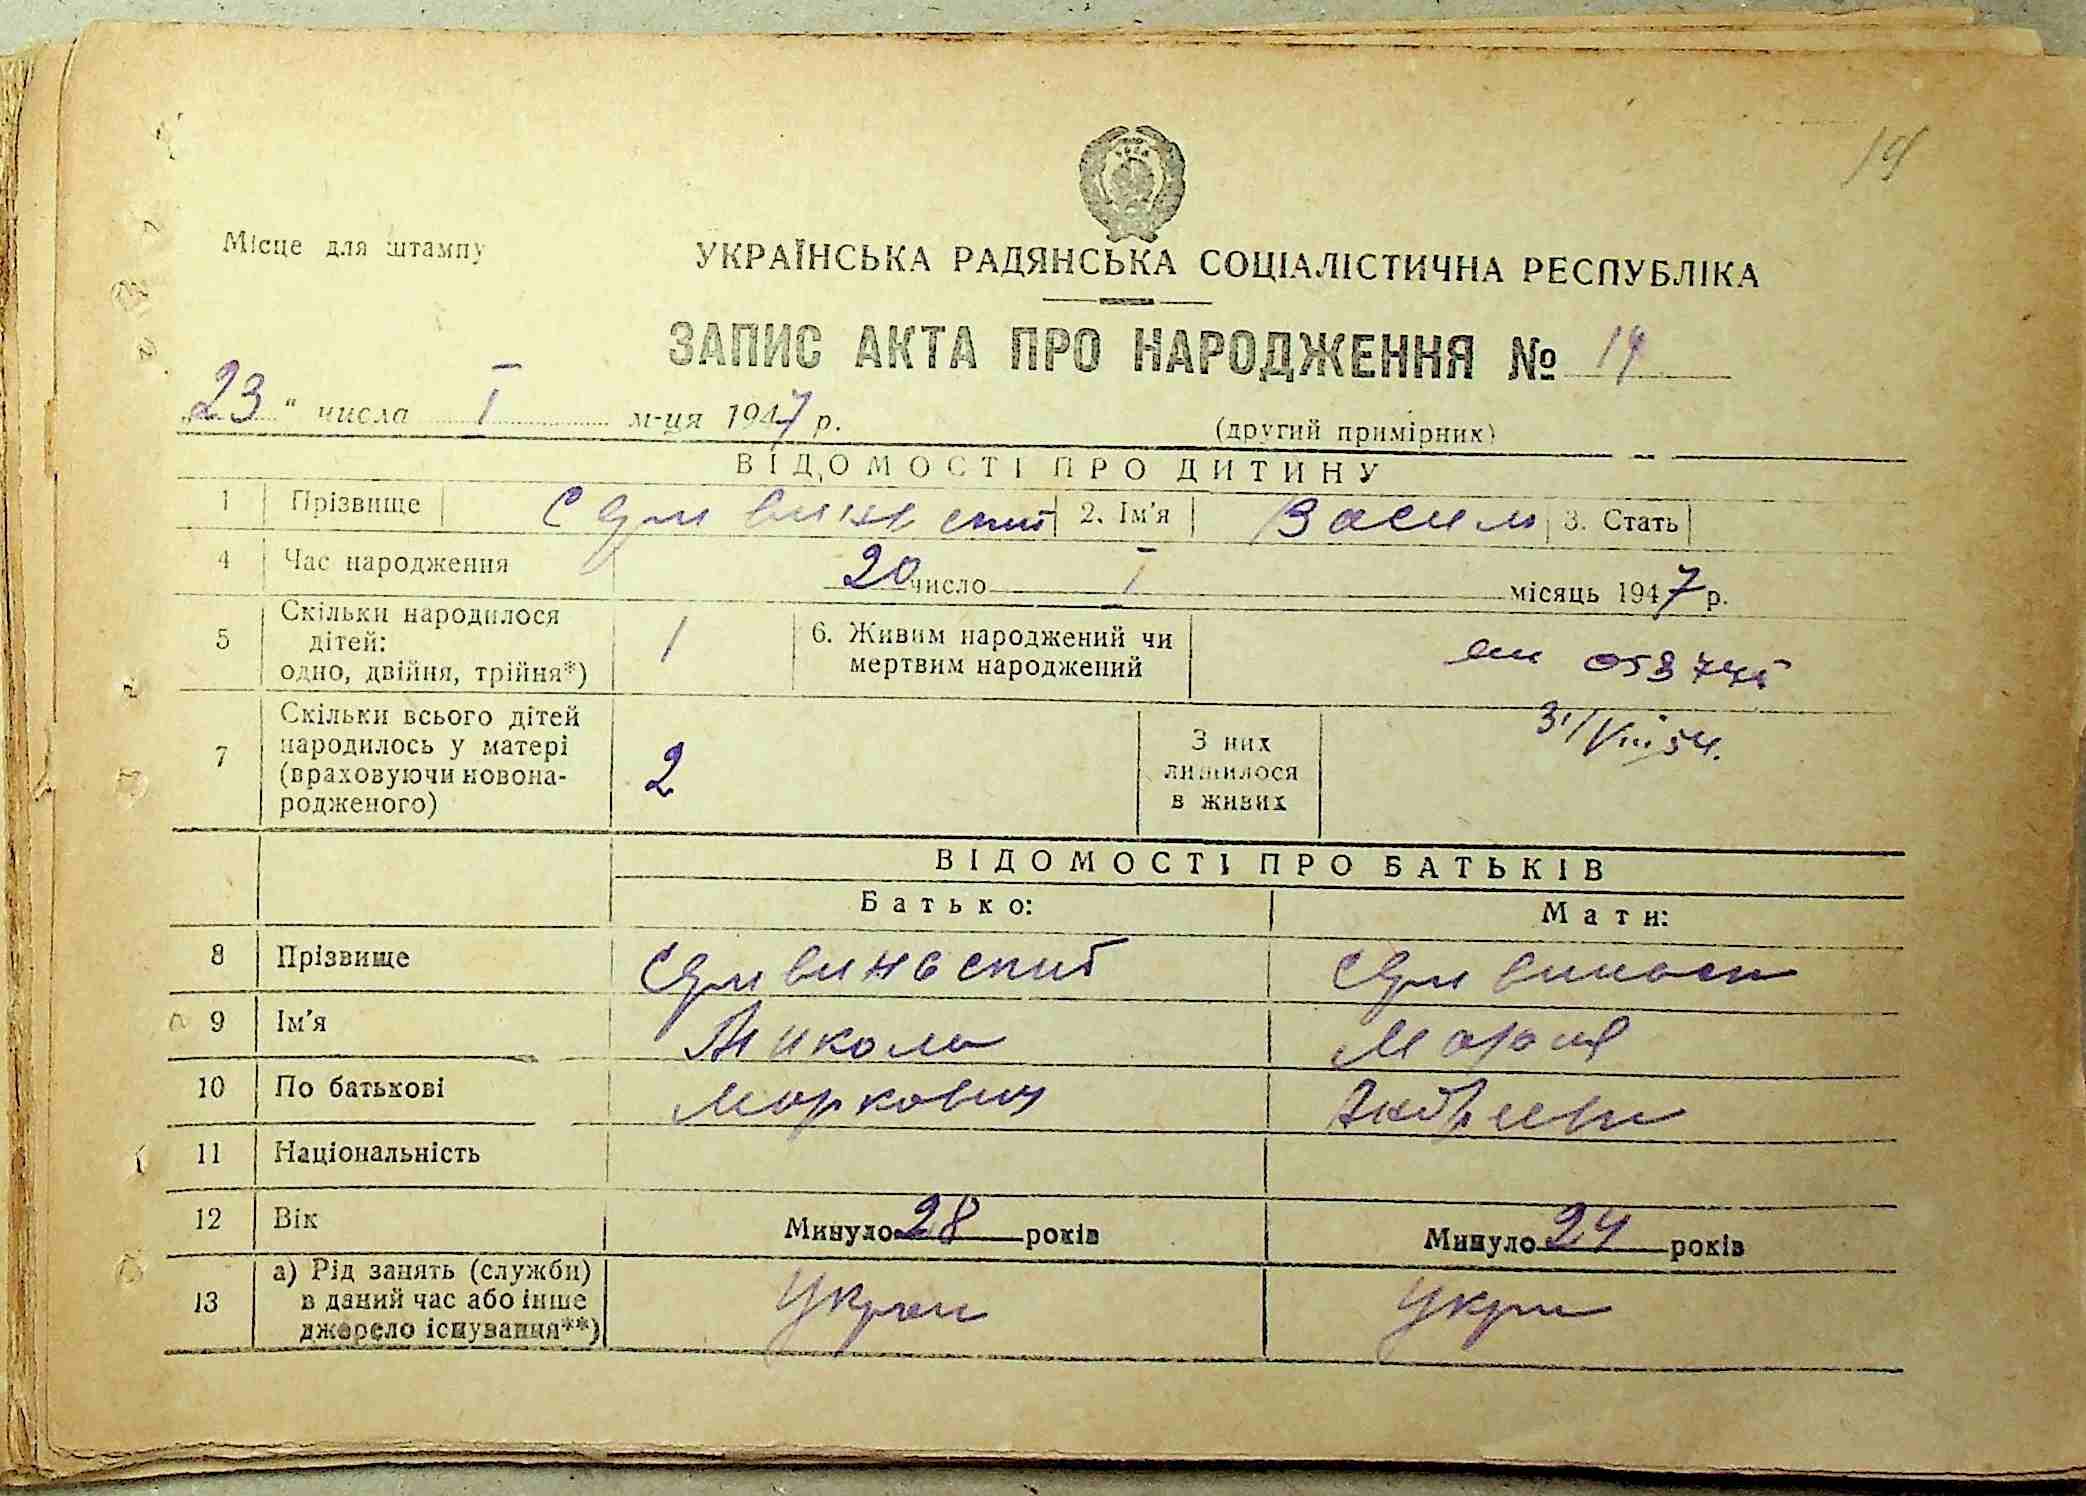 19
Місце для штампу
УКРАЇНСЬКА РАДЯНСЬКА СОЦІАЛІСТИЧНА РЕСПУБЛІКА
ЗАПИС АКТА ПРО НАРОДЖЕННЯ № 19
„23“ числа I м-ця 1947 р.
(другий примірник)
ВІДОМОСТІ ПРО ДИТИНУ
1 Прізвище 2. Ім'я Василь 3. Стать
4 Час народження 20 число I місяць 1947 р.
5 Скільки народилося дітей: одно, двійня, трійня*) 1 6. Живим народжений чи мертвим народжений
31/VIII 54.
7 Скільки всього дітей народилось у матері (враховуючи новонародженого) 2 З них лишилося в живих
ВІДОМОСТІ ПРО БАТЬКІВ
Батько: Мати:
8 Прізвище
9 Ім'я Микола Мария
10 По батькові Маркович
11 Національність
12 Вік Минуло 28 років Минуло 24 років
13 а) Рід занять (служби) в даний час або інше джерело існування**)